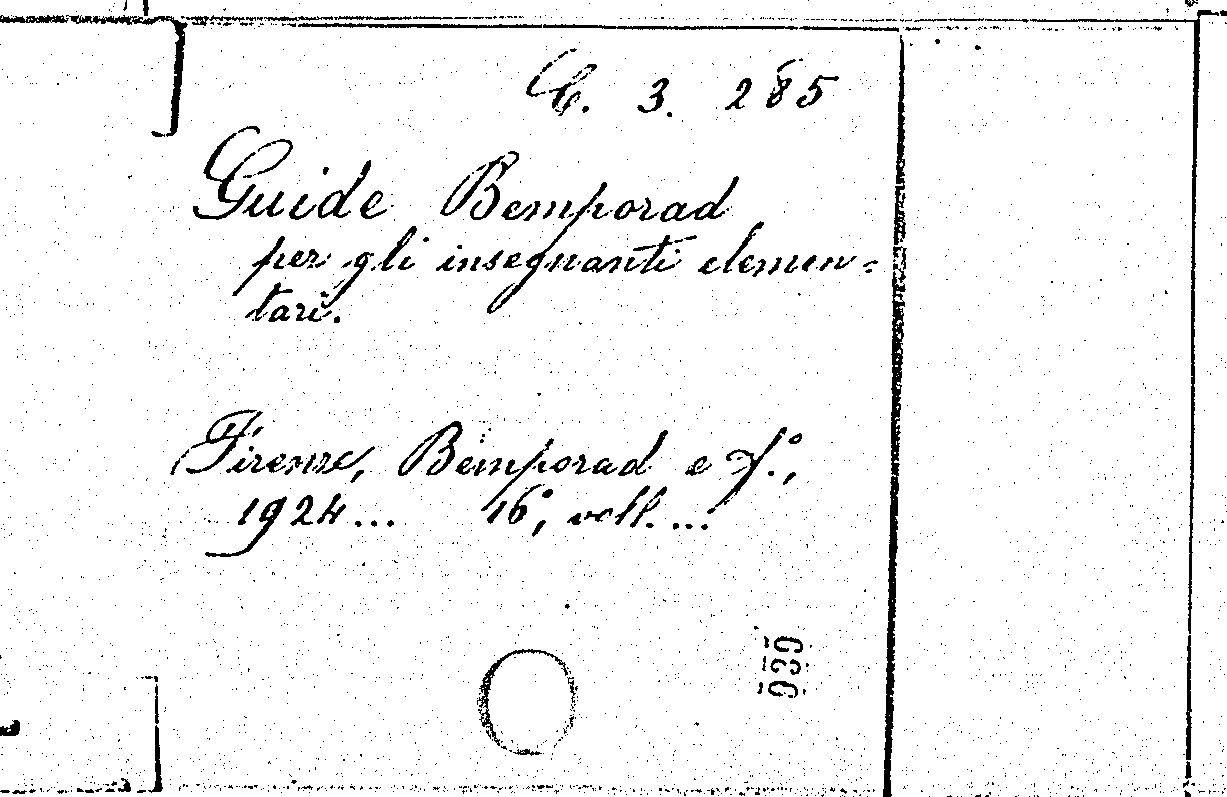 C. 3. 285
Guide Bemporad
per gli insegnanti elemen=
tari.
Firenze, Bemporad e f.°,
1924... 16°, voll. ...